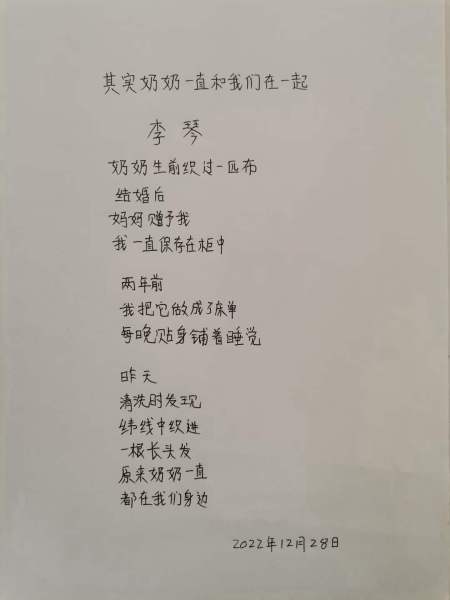 其实奶奶一直和我们在一起
李琴
奶奶生前织过一匹布
结婚后
妈妈赠予我
我一直保存在柜中
两年前
我把它做成了床单
每晚贴身铺着睡觉
昨天
清洗时发现
纬线中织进
一根长头发
原来奶奶一直
都在我们身边
2022年12月28日